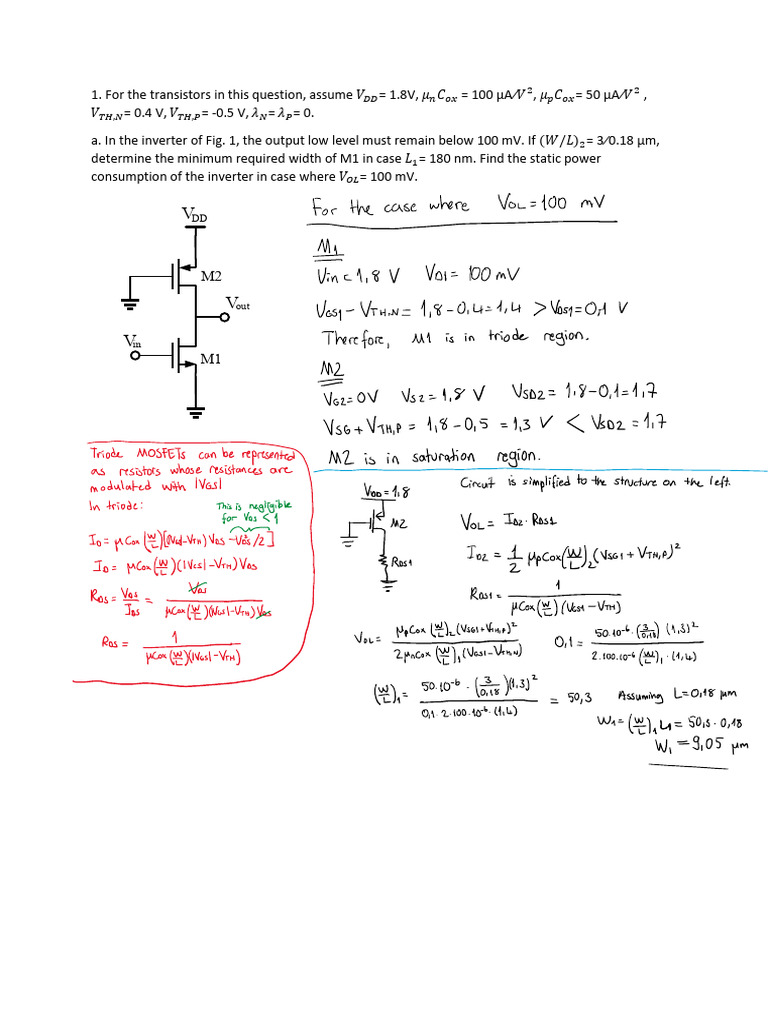 1. For the transistors in this question, assume V_DD= 1.8V, μ_n C_ox = 100 μA/V², μ_p C_ox= 50 μA/V² ,
V_TH,N= 0.4 V, V_TH,P= -0.5 V, λ_N= λ_P= 0.
a. In the inverter of Fig. 1, the output low level must remain below 100 mV. If (W/L)₂= 3/0.18 μm,
determine the minimum required width of M1 in case L₁= 180 nm. Find the static power
consumption of the inverter in case where V_OL= 100 mV.
V_DD
M2
V_out
V_in
M1
For the case where V_OL = 100 mV
M1
Vin = 1,8 V V_D1 = 100 mV
V_GS1 - V_TH,N = 1,8 - 0,4 = 1,4 > V_DS1 = 0,1 V
Therefore, M1 is in triode region.
M2
V_G2 = 0V V_S2 = 1,8 V V_SD2 = 1,8 - 0,1 = 1,7
V_SG + V_TH,P = 1,8 - 0,5 = 1,3 V < V_SD2 = 1,7
M2 is in saturation region.
Triode MOSFETs can be represented
as resistors whose resistances are
modulated with |VGS|
In triode:
This is negligible
for V_DS < 1
I_D = μCox (W/L)[(VGS-VTH) V_DS - V_DS²/2]
I_D = μCox (W/L)(|VGS| - VTH) V_DS
R_DS = V_DS/I_DS = V_DS/(μCox (W/L)(|VGS| - VTH) V_DS)
R_DS = 1/(μCox (W/L)(|VGS| - VTH))
V_DD = 1,8
M2
R_DS1
Circuit is simplified to the structure on the left.
V_OL = I_D2 · R_DS1
I_D2 = 1/2 μpCox (W/L)₂ (V_SG1 + V_TH,P)²
R_DS1 = 1/(μCox (W/L) (VGS1 - VTH))
V_OL = μpCox (W/L)₂ (V_SG1 + V_TH,P)²/(2μnCox (W/L)₁ (VGS1 - V_TH,N)) 0,1 = 50.10⁻⁶ · (3/0,18) (1,3)²/(2.100.10⁻⁶ (W/L)₁ · (1,4))
(W/L)₁ = 50.10⁻⁶ · (3/0,18)(1,3)²/(0,1 · 2 · 100 · 10⁻⁶ · (1,4)) = 50,3 Assuming L = 0,18 μm
W₁ = (W/L)₁ L₁ = 50,3 · 0,18
W₁ = 9,05 μm